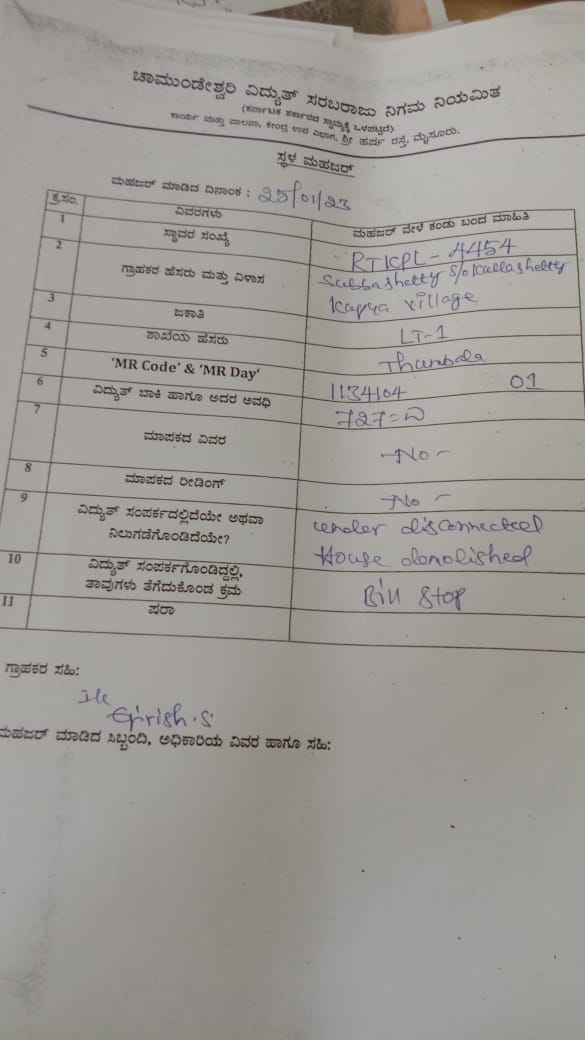 ಚಾಮುಂಡೇಶ್ವರಿ ವಿದ್ಯುತ್ ಸರಬರಾಜು ನಿಗಮ ನಿಯಮಿತ
(ಕರ್ನಾಟಕ ಸರ್ಕಾರದ ಸ್ವಾಮ್ಯಕ್ಕೆ ಒಳಪಟ್ಟಿದೆ)
ಕಾರ್ಯ ಮತ್ತು ಪಾಲನಾ, ಕೇಂದ್ರ ಉಪ ವಿಭಾಗ, ಶ್ರೀ ಹರ್ಷ ರಸ್ತೆ, ಮೈಸೂರು.
ಸ್ಥಳ ಮಹಜರ್
ಮಹಜರ್ ಮಾಡಿದ ದಿನಾಂಕ : 25/01/23
ಕ್ರ.ಸಂ. ವಿವರಗಳು ಮಹಜರ್ ವೇಳೆ ಕಂಡು ಬಂದ ಮಾಹಿತಿ
1 ಸ್ಥಾವರ ಸಂಖ್ಯೆ RTKPL-4454
2 ಗ್ರಾಹಕರ ಹೆಸರು ಮತ್ತು ವಿಳಾಸ Subbashetty S/o Kallashetty
Kupya village
3 ಜಕಾತಿ LT-1
4 ಶಾಖೆಯ ಹೆಸರು Thumbala
5 'MR Code' & 'MR Day' 1134104 01
6 ವಿದ್ಯುತ್ ಬಾಕಿ ಹಾಗೂ ಅದರ ಅವಧಿ 727=
7 ಮಾಪಕದ ವಿವರ -No-
8 ಮಾಪಕದ ರೀಡಿಂಗ್ -No-
9 ವಿದ್ಯುತ್ ಸಂಪರ್ಕದಲ್ಲಿದೆಯೇ ಅಥವಾ under disconnected
ನಿಲುಗಡೆಗೊಂಡಿದೆಯೇ? House demolished
10 ವಿದ್ಯುತ್ ಸಂಪರ್ಕಗೊಂಡಿದ್ದಲ್ಲಿ, Bill stop
ತಾವುಗಳು ತೆಗೆದುಕೊಂಡ ಕ್ರಮ
11 ಷರಾ
ಗ್ರಾಹಕರ ಸಹಿ:
Girish.S
ಮಹಜರ್ ಮಾಡಿದ ಸಿಬ್ಬಂದಿ, ಅಧಿಕಾರಿಯ ವಿವರ ಹಾಗೂ ಸಹಿ: